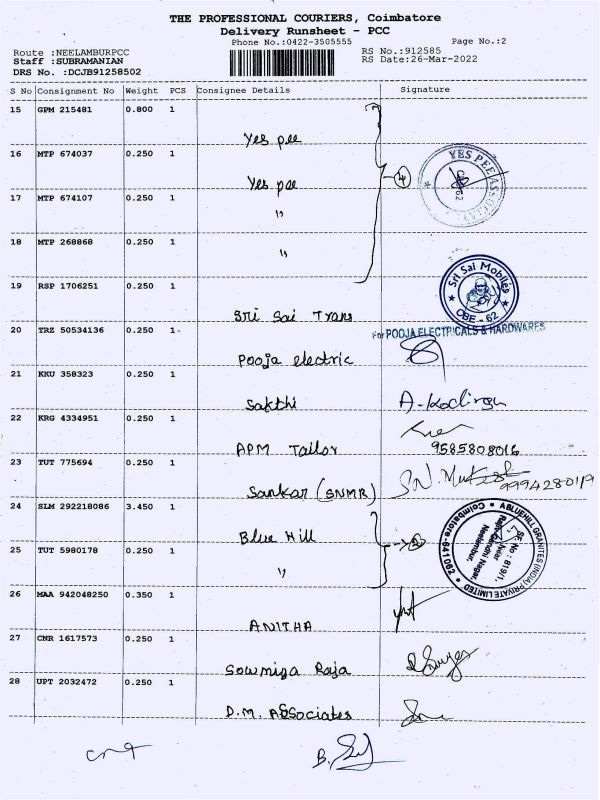 THE PROFESSIONAL COURIERS, Coimbatore
Delivery Runsheet - PCC
Phone No.:0422-3505555 Page No.:2
Route :NEELAMBURPCC RS No.:912585
Staff :SUBRAMANIAN RS Date:26-Mar-2022
DRS No. :DCJB91258502
S No Consignment No Weight PCS Consignee Details Signature
15 GPM 215481 0.800 1
Yes pee
16 MTP 674037 0.250 1
Yes pee
4
YES PEE ASSOCIAT
17 MTP 674107 0.250 1
"
18 MTP 268868 0.250 1
"
19 RSP 1706251 0.250 1
Sri Sai Trans
Sri Sai Mobiles
CBE - 62
20 TRZ 50534136 0.250 1
For POOJA ELECTRICALS & HARDWARES
Pooja electric
21 KKU 358323 0.250 1
Sakthi
22 KRG 4334951 0.250 1
APM Tailor 9585808016
23 TUT 775694 0.250 1
Sankar (SNMR) 9994280119
24 SLM 292218086 3.450 1
Blue Hill
2
ABLUEHILL GRANITES (INDIA) PRIVATE LIMITED
SF. No : 819/1,
Neelambur,
Coimbatore-641062
25 TUT 5980178 0.250 1
"
26 MAA 942048250 0.350 1
ANITHA
27 CNR 1617573 0.250 1
Sowmiya Raja
28 UPT 2032472 0.250 1
D.M. Associates